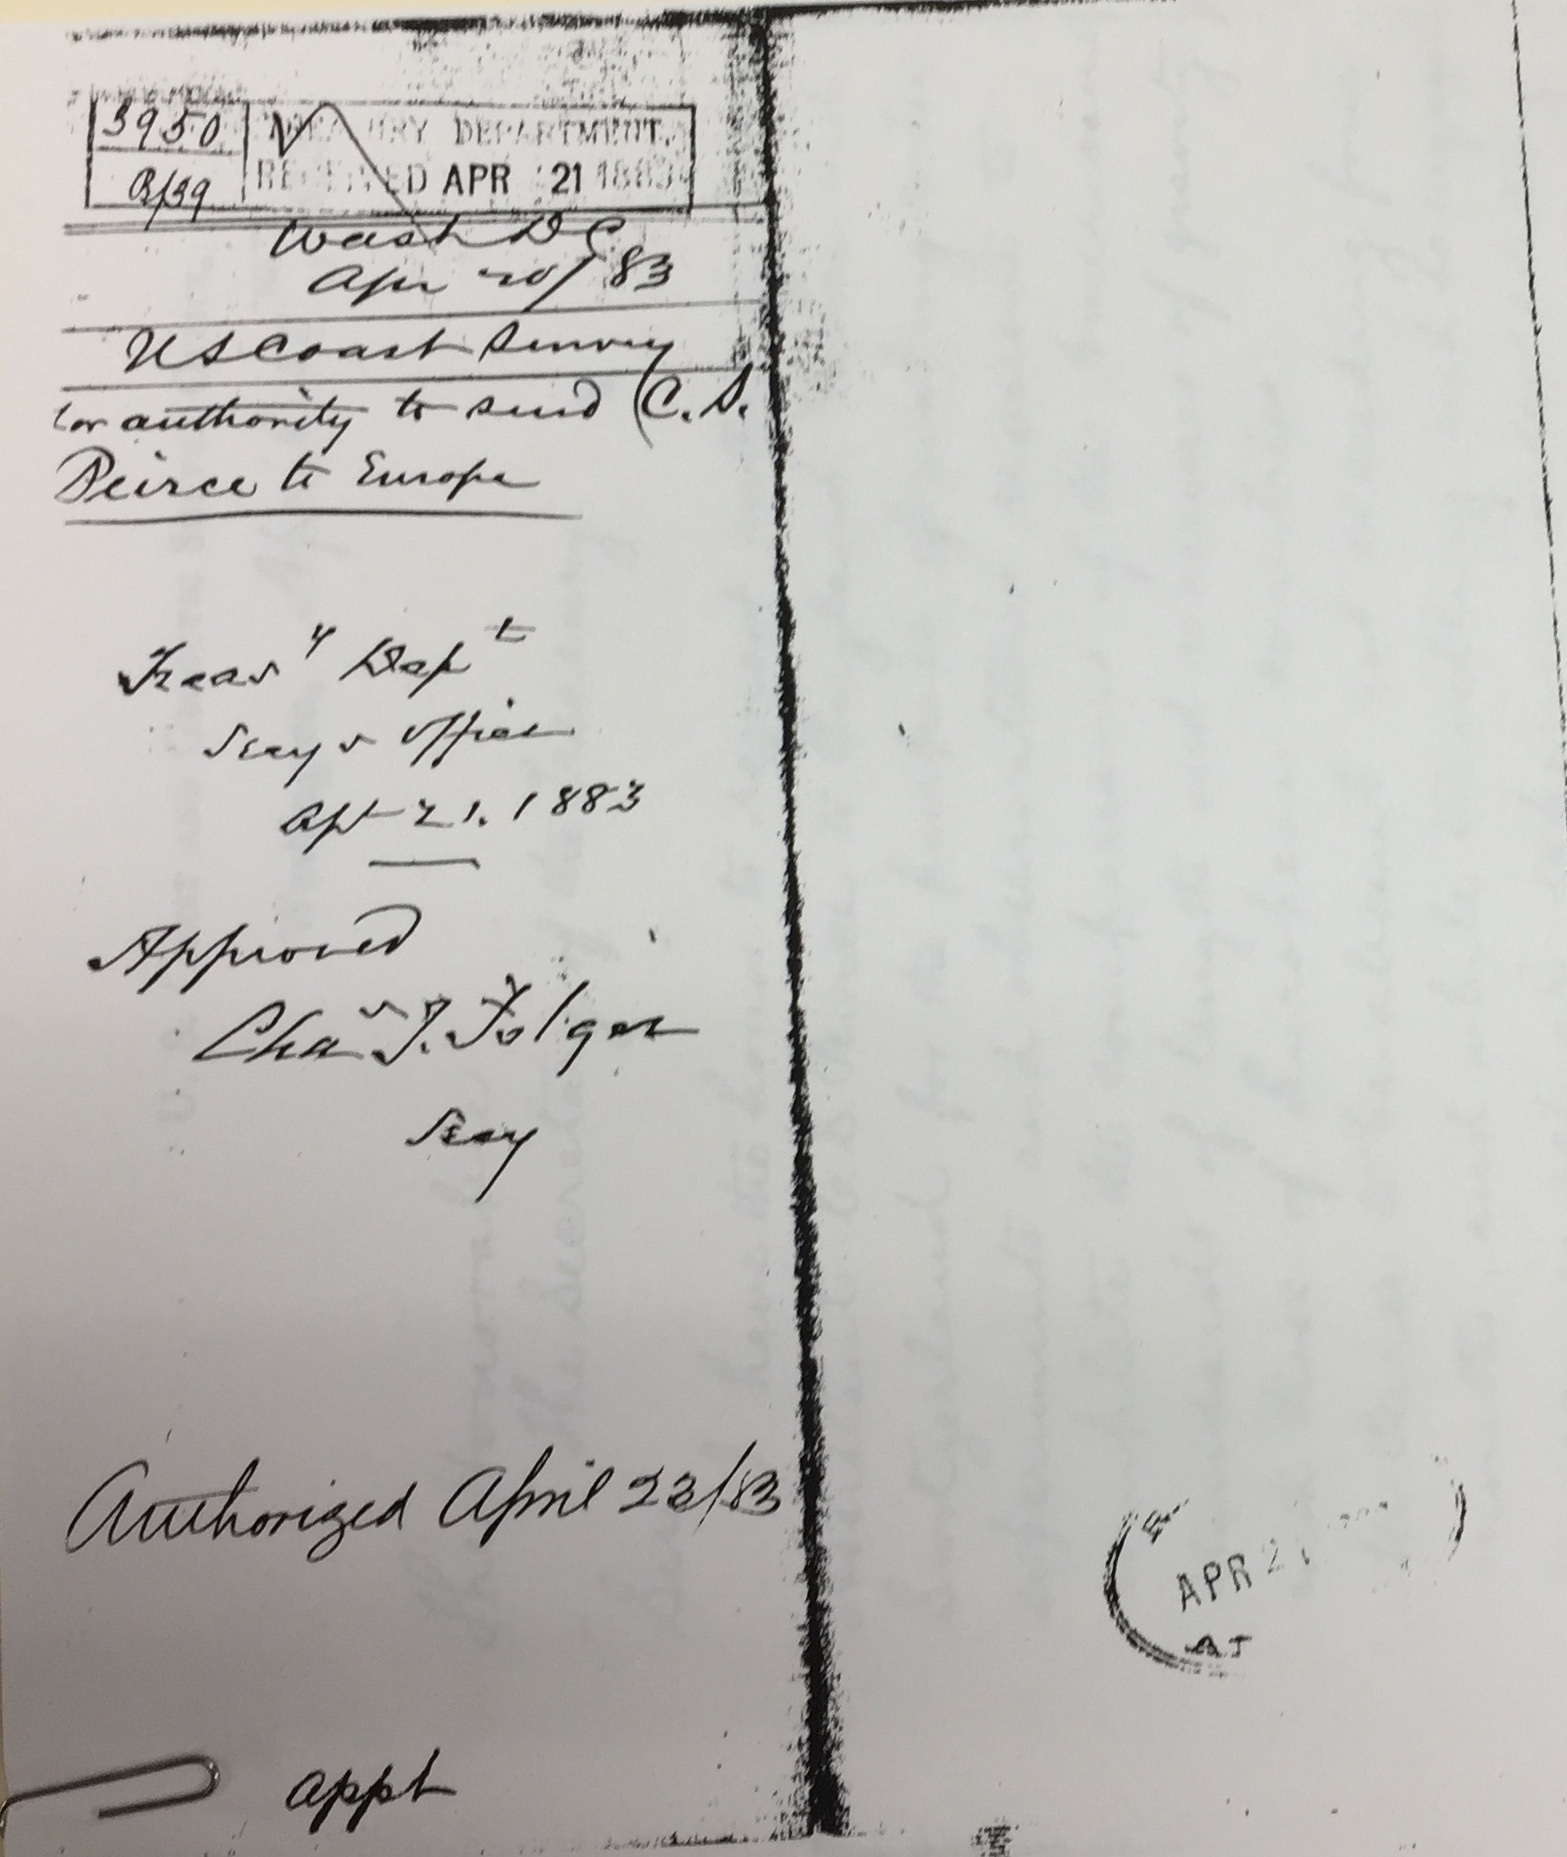 3950
B/39
TREASURY DEPARTMENT,
RECEIVED APR 21 1883
Wash D C
Apr 20/83
US Coast Survey
for authority to send C. S.
Peirce to Europe
Treasy Dept
Secys Office
Apl 21. 1883
Approved
Chas J. Folger
Secy
Authorized April 23/83
appt
APR 21